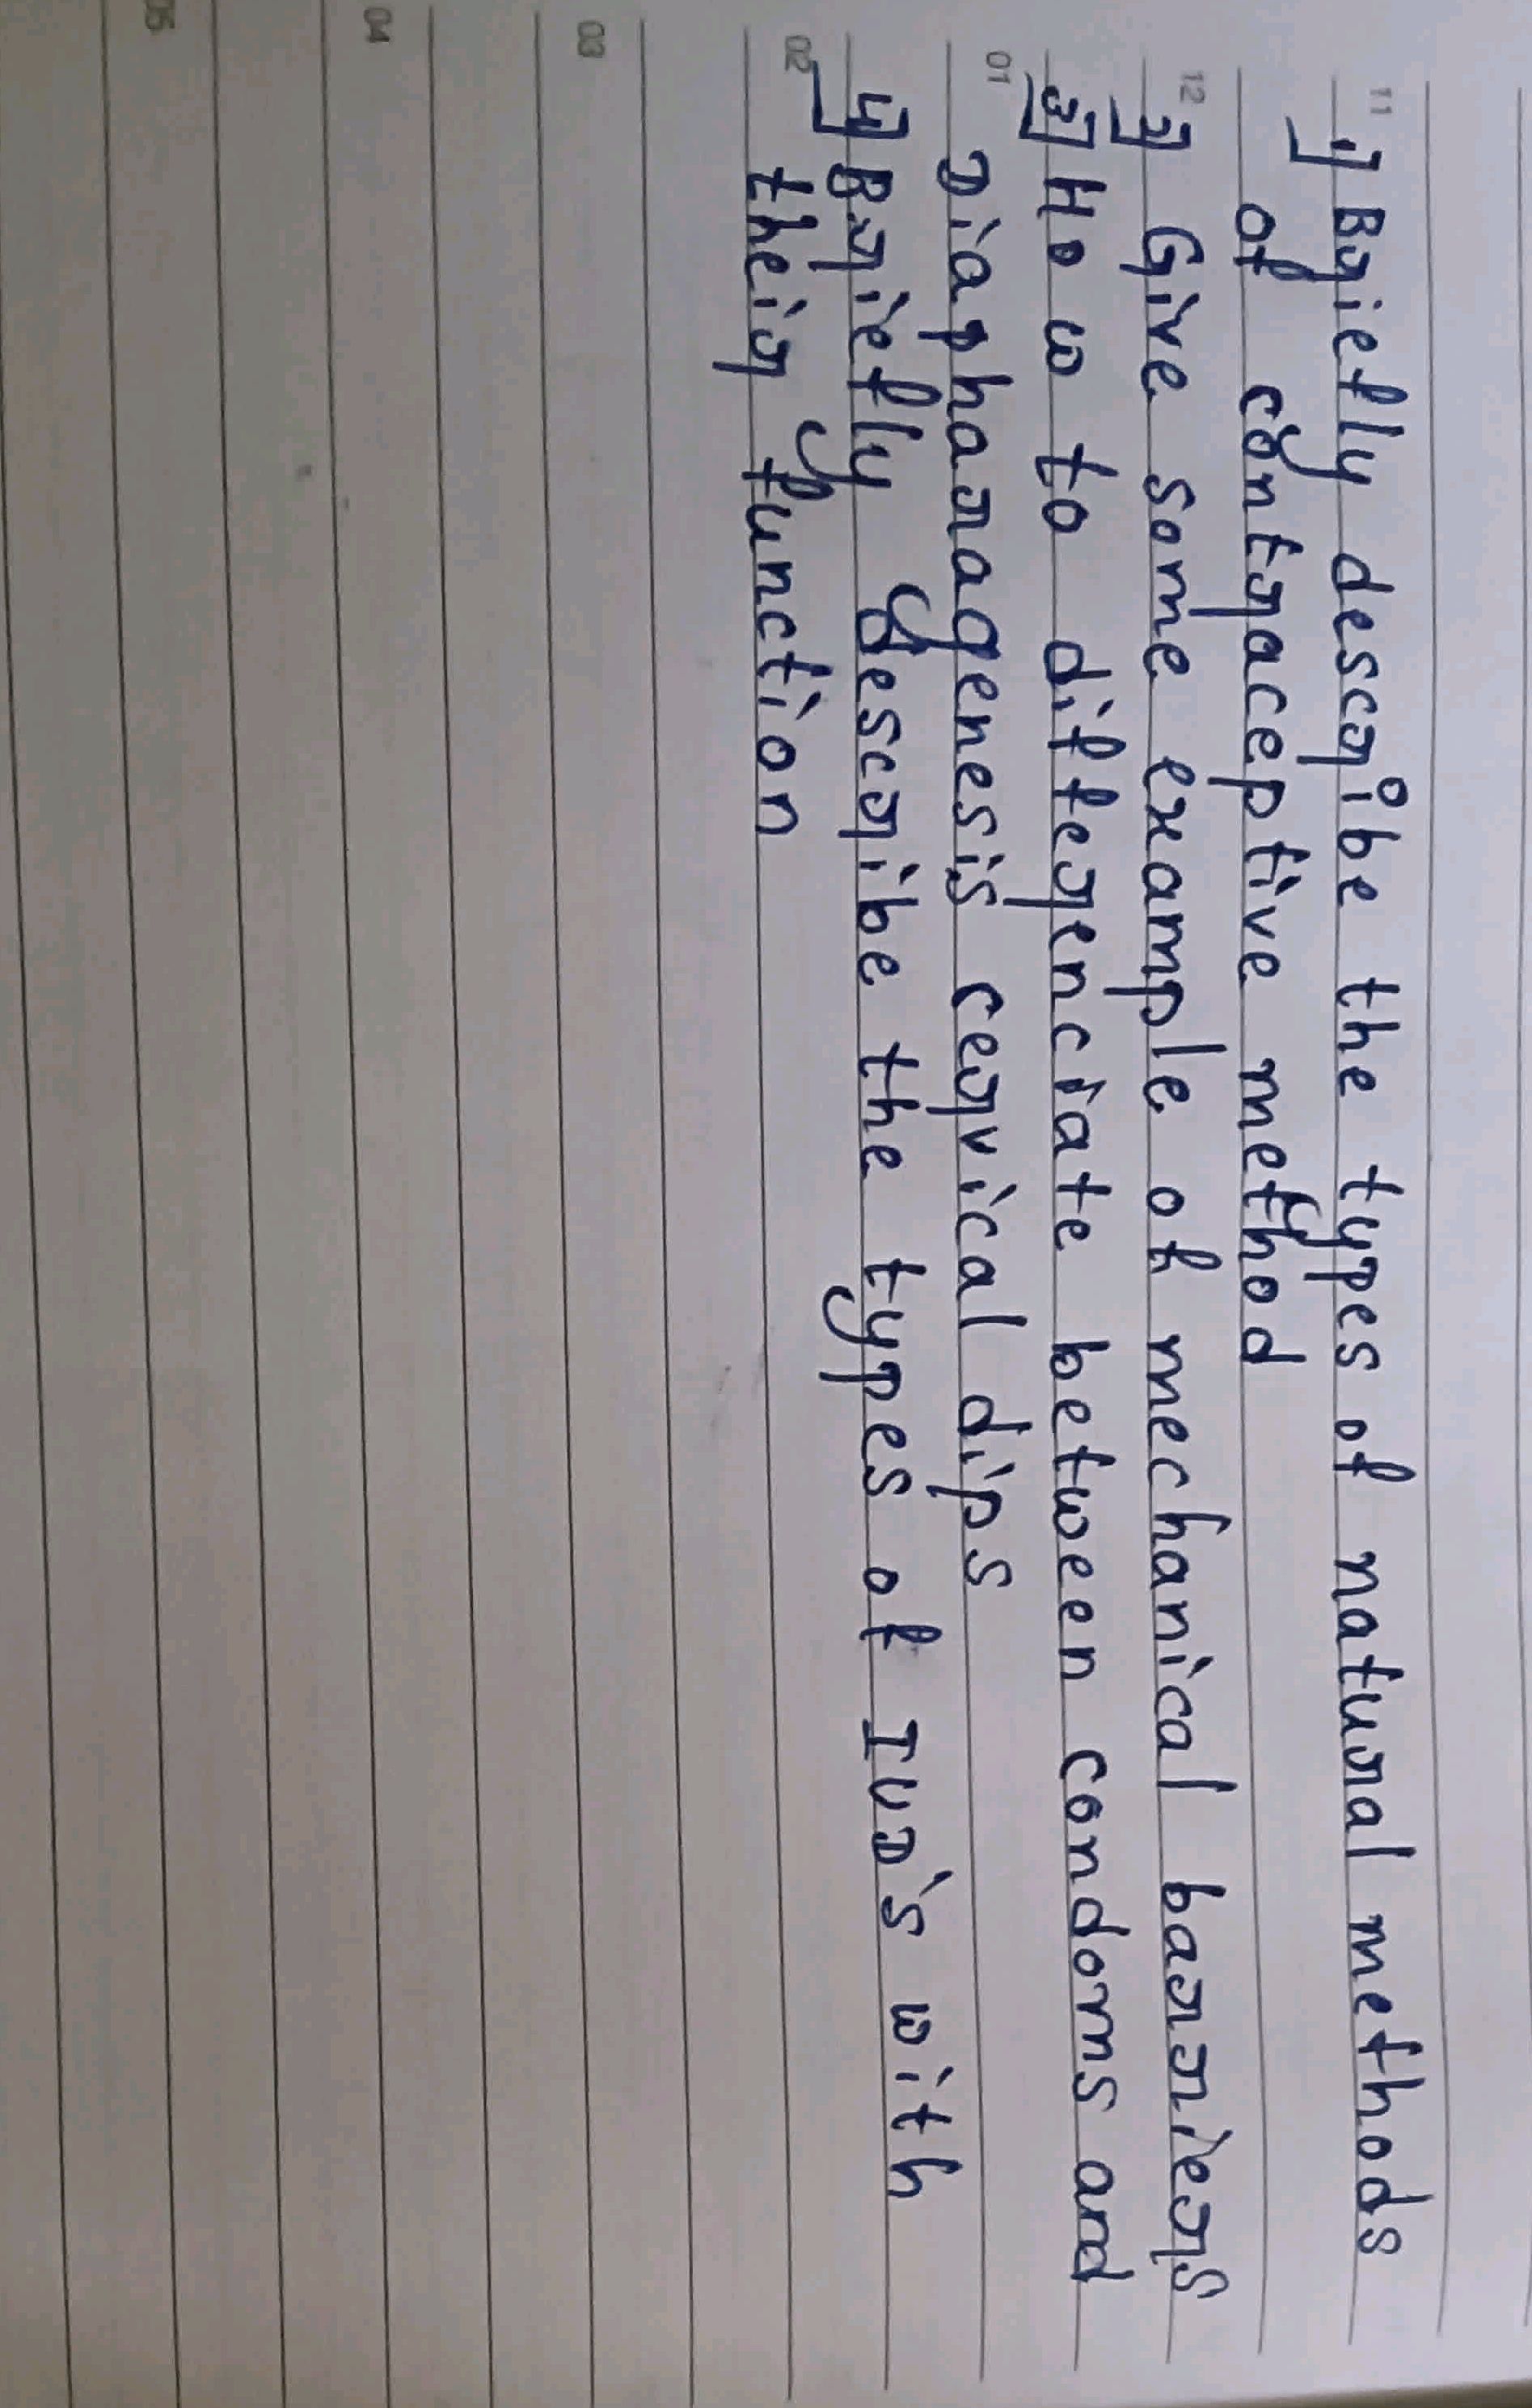 11
1] Briefly describe the types of natural methods
of contraceptive method
12
2] Give some example of mechanical barriers
3] How to differenciate between condoms and
01
Diapharagenesis cervical dips
4] Briefly describe the types of IUD's with
02
their function
03
04
05